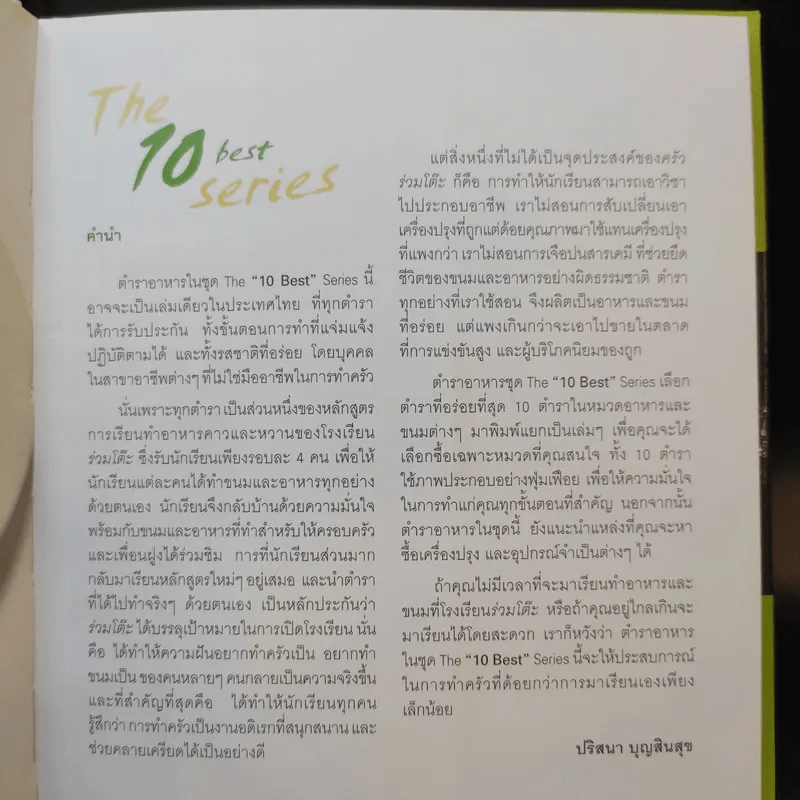 The
10 best
series
คำนำ
ตำราอาหารในชุด The “10 Best” Series นี้
อาจจะเป็นเล่มเดียวในประเทศไทย ที่ทุกตำรา
ได้การรับประกัน ทั้งขั้นตอนการทำที่แจ่มแจ้ง
ปฏิบัติตามได้ และทั้งรสชาติที่อร่อย โดยบุคคล
ในสาขาอาชีพต่างๆ ที่ไม่ใช่มืออาชีพในการทำครัว
นั่นเพราะทุกตำรา เป็นส่วนหนึ่งของหลักสูตร
การเรียนทำอาหารคาวและหวานของโรงเรียน
ร่วมโต๊ะ ซึ่งรับนักเรียนเพียงรอบละ 4 คน เพื่อให้
นักเรียนแต่ละคนได้ทำขนมและอาหารทุกอย่าง
ด้วยตนเอง นักเรียนจึงกลับบ้านด้วยความมั่นใจ
พร้อมกับขนมและอาหารที่ทำสำหรับให้ครอบครัว
และเพื่อนฝูงได้ร่วมชิม การที่นักเรียนส่วนมาก
กลับมาเรียนหลักสูตรใหม่ๆ อยู่เสมอ และนำตำรา
ที่ได้ไปทำจริงๆ ด้วยตนเอง เป็นหลักประกันว่า
ร่วมโต๊ะ ได้บรรลุเป้าหมายในการเปิดโรงเรียน นั่น
คือ ได้ทำให้ความฝันอยากทำครัวเป็น อยากทำ
ขนมเป็น ของคนหลายๆ คนกลายเป็นความจริงขึ้น
และที่สำคัญที่สุดคือ ได้ทำให้นักเรียนทุกคน
รู้สึกว่า การทำครัวเป็นงานอดิเรกที่สนุกสนาน และ
ช่วยคลายเครียดได้เป็นอย่างดี
แต่สิ่งหนึ่งที่ไม่ได้เป็นจุดประสงค์ของครัว
ร่วมโต๊ะ ก็คือ การทำให้นักเรียนสามารถเอาวิชา
ไปประกอบอาชีพ เราไม่สอนการสับเปลี่ยนเอา
เครื่องปรุงที่ถูกแต่ด้อยคุณภาพมาใช้แทนเครื่องปรุง
ที่แพงกว่า เราไม่สอนการเจือปนสารเคมี ที่ช่วยยืด
ชีวิตของขนมและอาหารอย่างผิดธรรมชาติ ตำรา
ทุกอย่างที่เราใช้สอน จึงผลิตเป็นอาหารและขนม
ที่อร่อย แต่แพงเกินกว่าจะเอาไปขายในตลาด
ที่การแข่งขันสูง และผู้บริโภคนิยมของถูก
ตำราอาหารชุด The “10 Best” Series เลือก
ตำราที่อร่อยที่สุด 10 ตำราในหมวดอาหารและ
ขนมต่างๆ มาพิมพ์แยกเป็นเล่มๆ เพื่อคุณจะได้
เลือกซื้อเฉพาะหมวดที่คุณสนใจ ทั้ง 10 ตำรา
ใช้ภาพประกอบอย่างฟุ่มเฟือย เพื่อให้ความมั่นใจ
ในการทำแก่คุณทุกขั้นตอนที่สำคัญ นอกจากนั้น
ตำราอาหารในชุดนี้ ยังแนะนำแหล่งที่คุณจะหา
ซื้อเครื่องปรุง และอุปกรณ์จำเป็นต่างๆ ได้
ถ้าคุณไม่มีเวลาที่จะมาเรียนทำอาหารและ
ขนมที่โรงเรียนร่วมโต๊ะ หรือถ้าคุณอยู่ไกลเกินจะ
มาเรียนได้โดยสะดวก เราก็หวังว่า ตำราอาหาร
ในชุด The “10 Best” Series นี้จะให้ประสบการณ์
ในการทำครัวที่ด้อยกว่าการมาเรียนเองเพียง
เล็กน้อย
ปริสนา บุญสินสุข